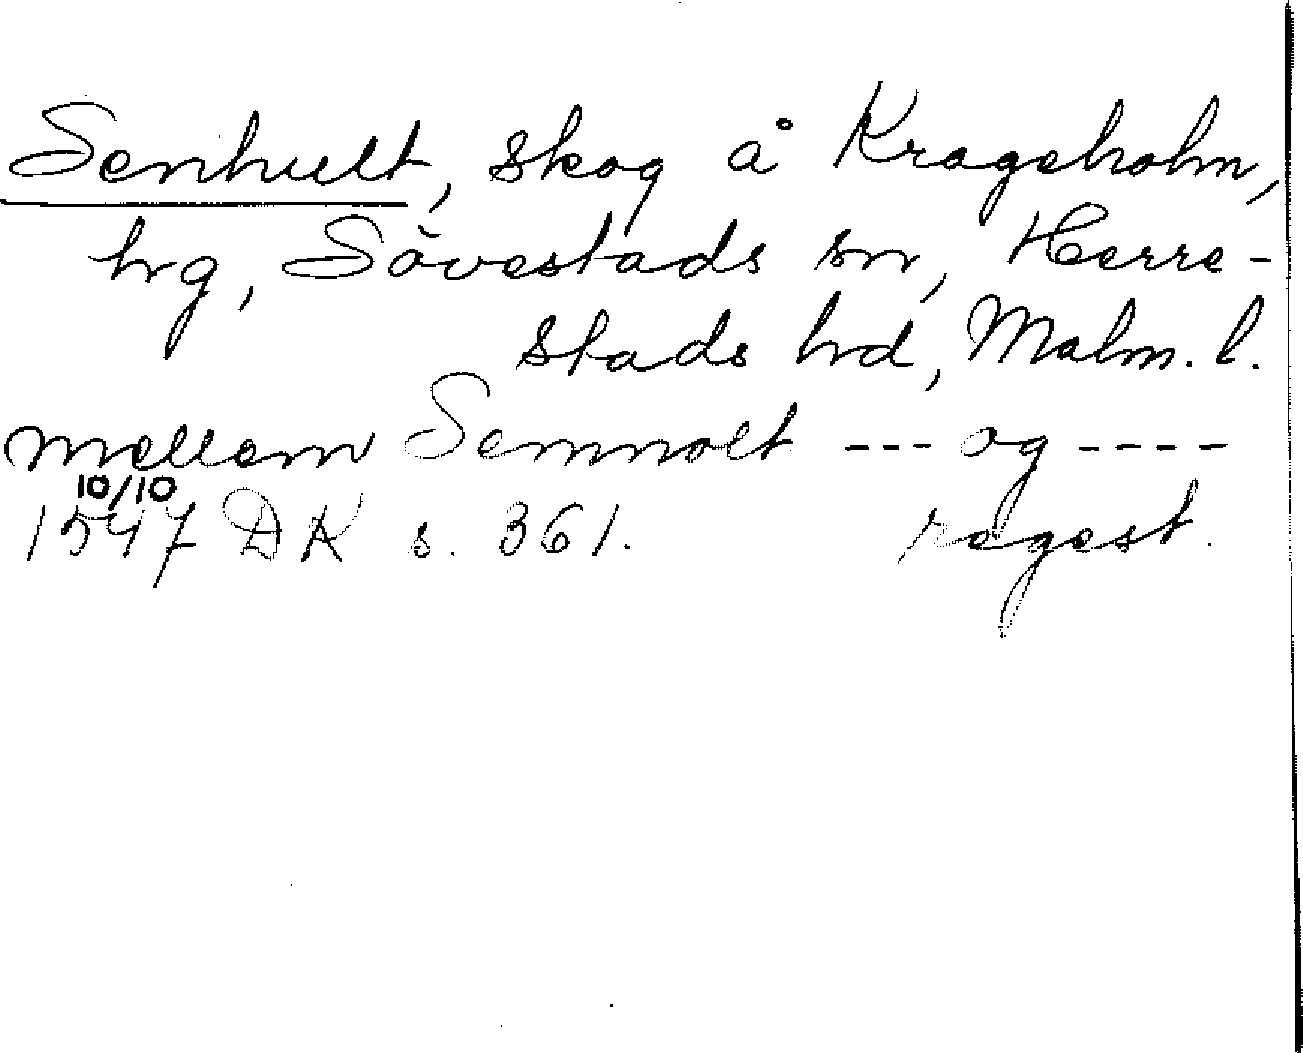 Senhult, skog å Krageholm,
hrg, Sövestads sn, Herre-
stads hrd, Malm. l.
mellem Semnolt --- og ----
10/10
1547 DK s. 361. regest.